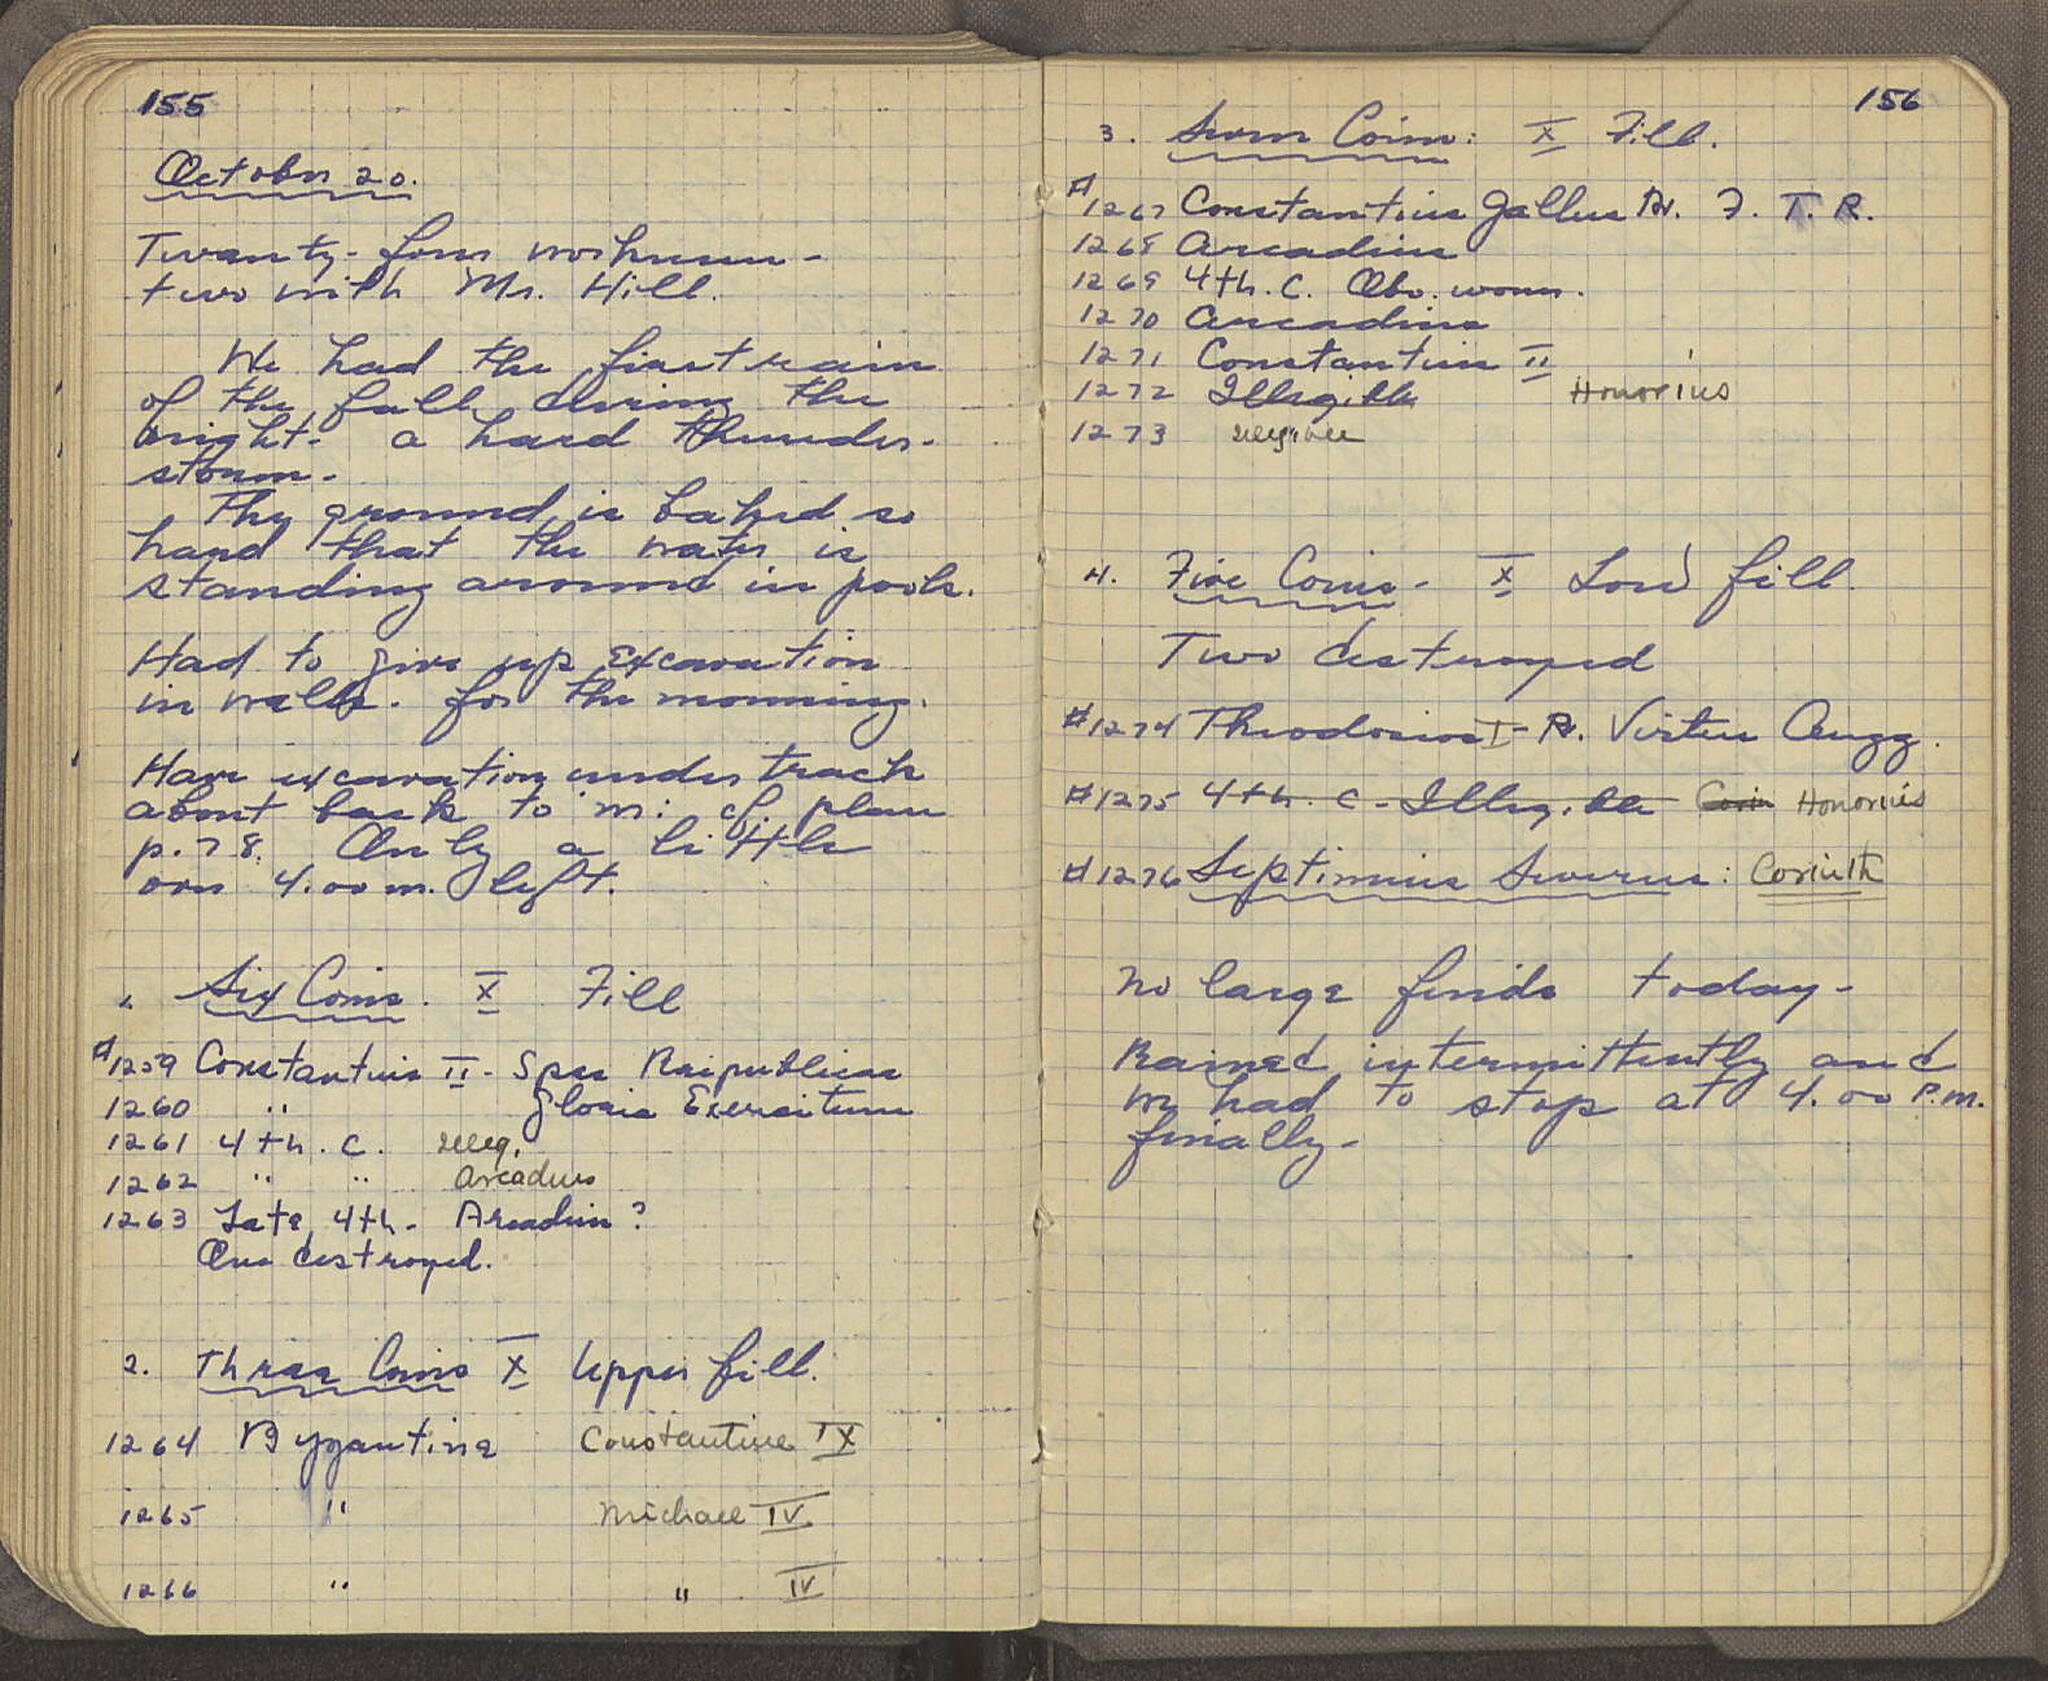 155
October 20.
Twenty-four workmen -
two with Mr. Hill.
We had the first rain
of the fall during the
night - a hard thunder-
storm.
The ground is baked so
hard that the water is
standing around in pools.
Had to give up excavation
in wells. for the morning.
Have excavation under track
about back to m: cf. plan
p. 78. Only a little
over 4.00 m. left.
1. Six Coins. X Fill
#1259 Constantius II - Spes Reipublicae
1260 " Gloria Exercitum
1261 4th. C. illeg.
1262 " " Arcadius
1263 Late 4th - Arcadius?
One destroyed.
2. Three Coins X Upper fill.
1264 Byzantine Constantine IX
1265 " Michael IV
1266 " " IV
156
3. Seven Coins: X Fill.
#1267 Constantius Gallus Rv. F. T. R.
1268 Arcadius
1269 4th. C. Obv. worn.
1270 Arcadius
1271 Constantius II
1272 Illegible Honorius
1273 illegible
4. Five Coins - X Low fill.
Two destroyed
#1274 Theodosios I - R. Virtus Augg.
#1275 4th. C - Illegible Corin Honorius
#1276 Septimius Severus: Corinth
No large finds today -
Rained intermittently and
we had to stop at 4.00 P.M.
finally -